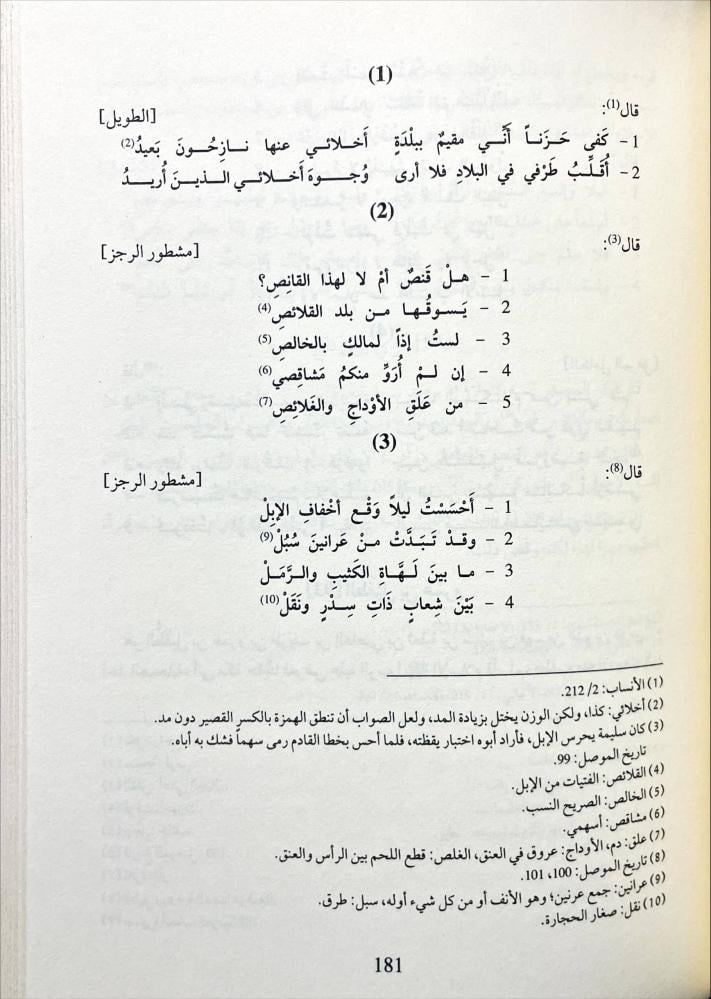 (1)
قال(1): [الطويل]
1- كَفى حَـزَناً أَنَّـي مقيمٌ ببلْدَة أخـلائـي عنها نـازحُـونَ بَعيدُ(2)
2- أُقَلِّـبُ طَرْفي في البلادِ فـلا أرى وُجُـوهَ أَخلائـي الـذيـنَ أُريـدُ
(2)
قال(3): [مشطور الرجز]
1 - هـلْ قَنصٌ أمْ لا لهذا القانِصِ؟
2 - يَـسوقُـهـا مـن بلد القلائصِ(4)
3 - لستُ إذاً لمالكٍ بالخالصِ(5)
4 - إن لـمْ أُرَوِّ منكمُ مَشاقِصي(6)
5 - من عَلَقِ الأوْداجِ والغَلائِصِ(7)
(3)
قال(8): [مشطور الرجز]
1 - أحْسَسْتُ ليلاً وَقْع أخْفافِ الإبِلْ
2 - وقـدْ تَـبَدَّتْ مـنْ عَرانينَ سُبُلْ(9)
3 - مـا بينَ لَـهَّاةِ الكَثيبِ والـرَّمَلْ
4 - بَيْنَ شِعابٍ ذَاتِ سِدْرٍ ونَقَلْ(10)
(1) الأنساب: 2/ 212.
(2) أخلائي: كذا، ولكن الوزن يختل بزيادة المد، ولعل الصواب أن تنطق الهمزة بالكسر القصير دون مد.
(3) كان سليمة يحرس الإبل، فأراد أبوه اختبار يقظته، فلما أحس بخطا القادم رمى سهماً فشك به أباه.
تاريخ الموصل: 99.
(4) القلائص: الفتيات من الإبل.
(5) الخالص: الصريح النسب.
(6) مشاقص: أسهمي.
(7) علق: دم، الأوداج: عروق في العنق، الغلص: قطع اللحم بين الرأس والعنق.
(8) تاريخ الموصل: 100، 101.
(9) عرانين: جمع عرنين؛ وهو الأنف أو من كل شيء أوله، سبل: طرق.
(10) نقل: صغار الحجارة.
181